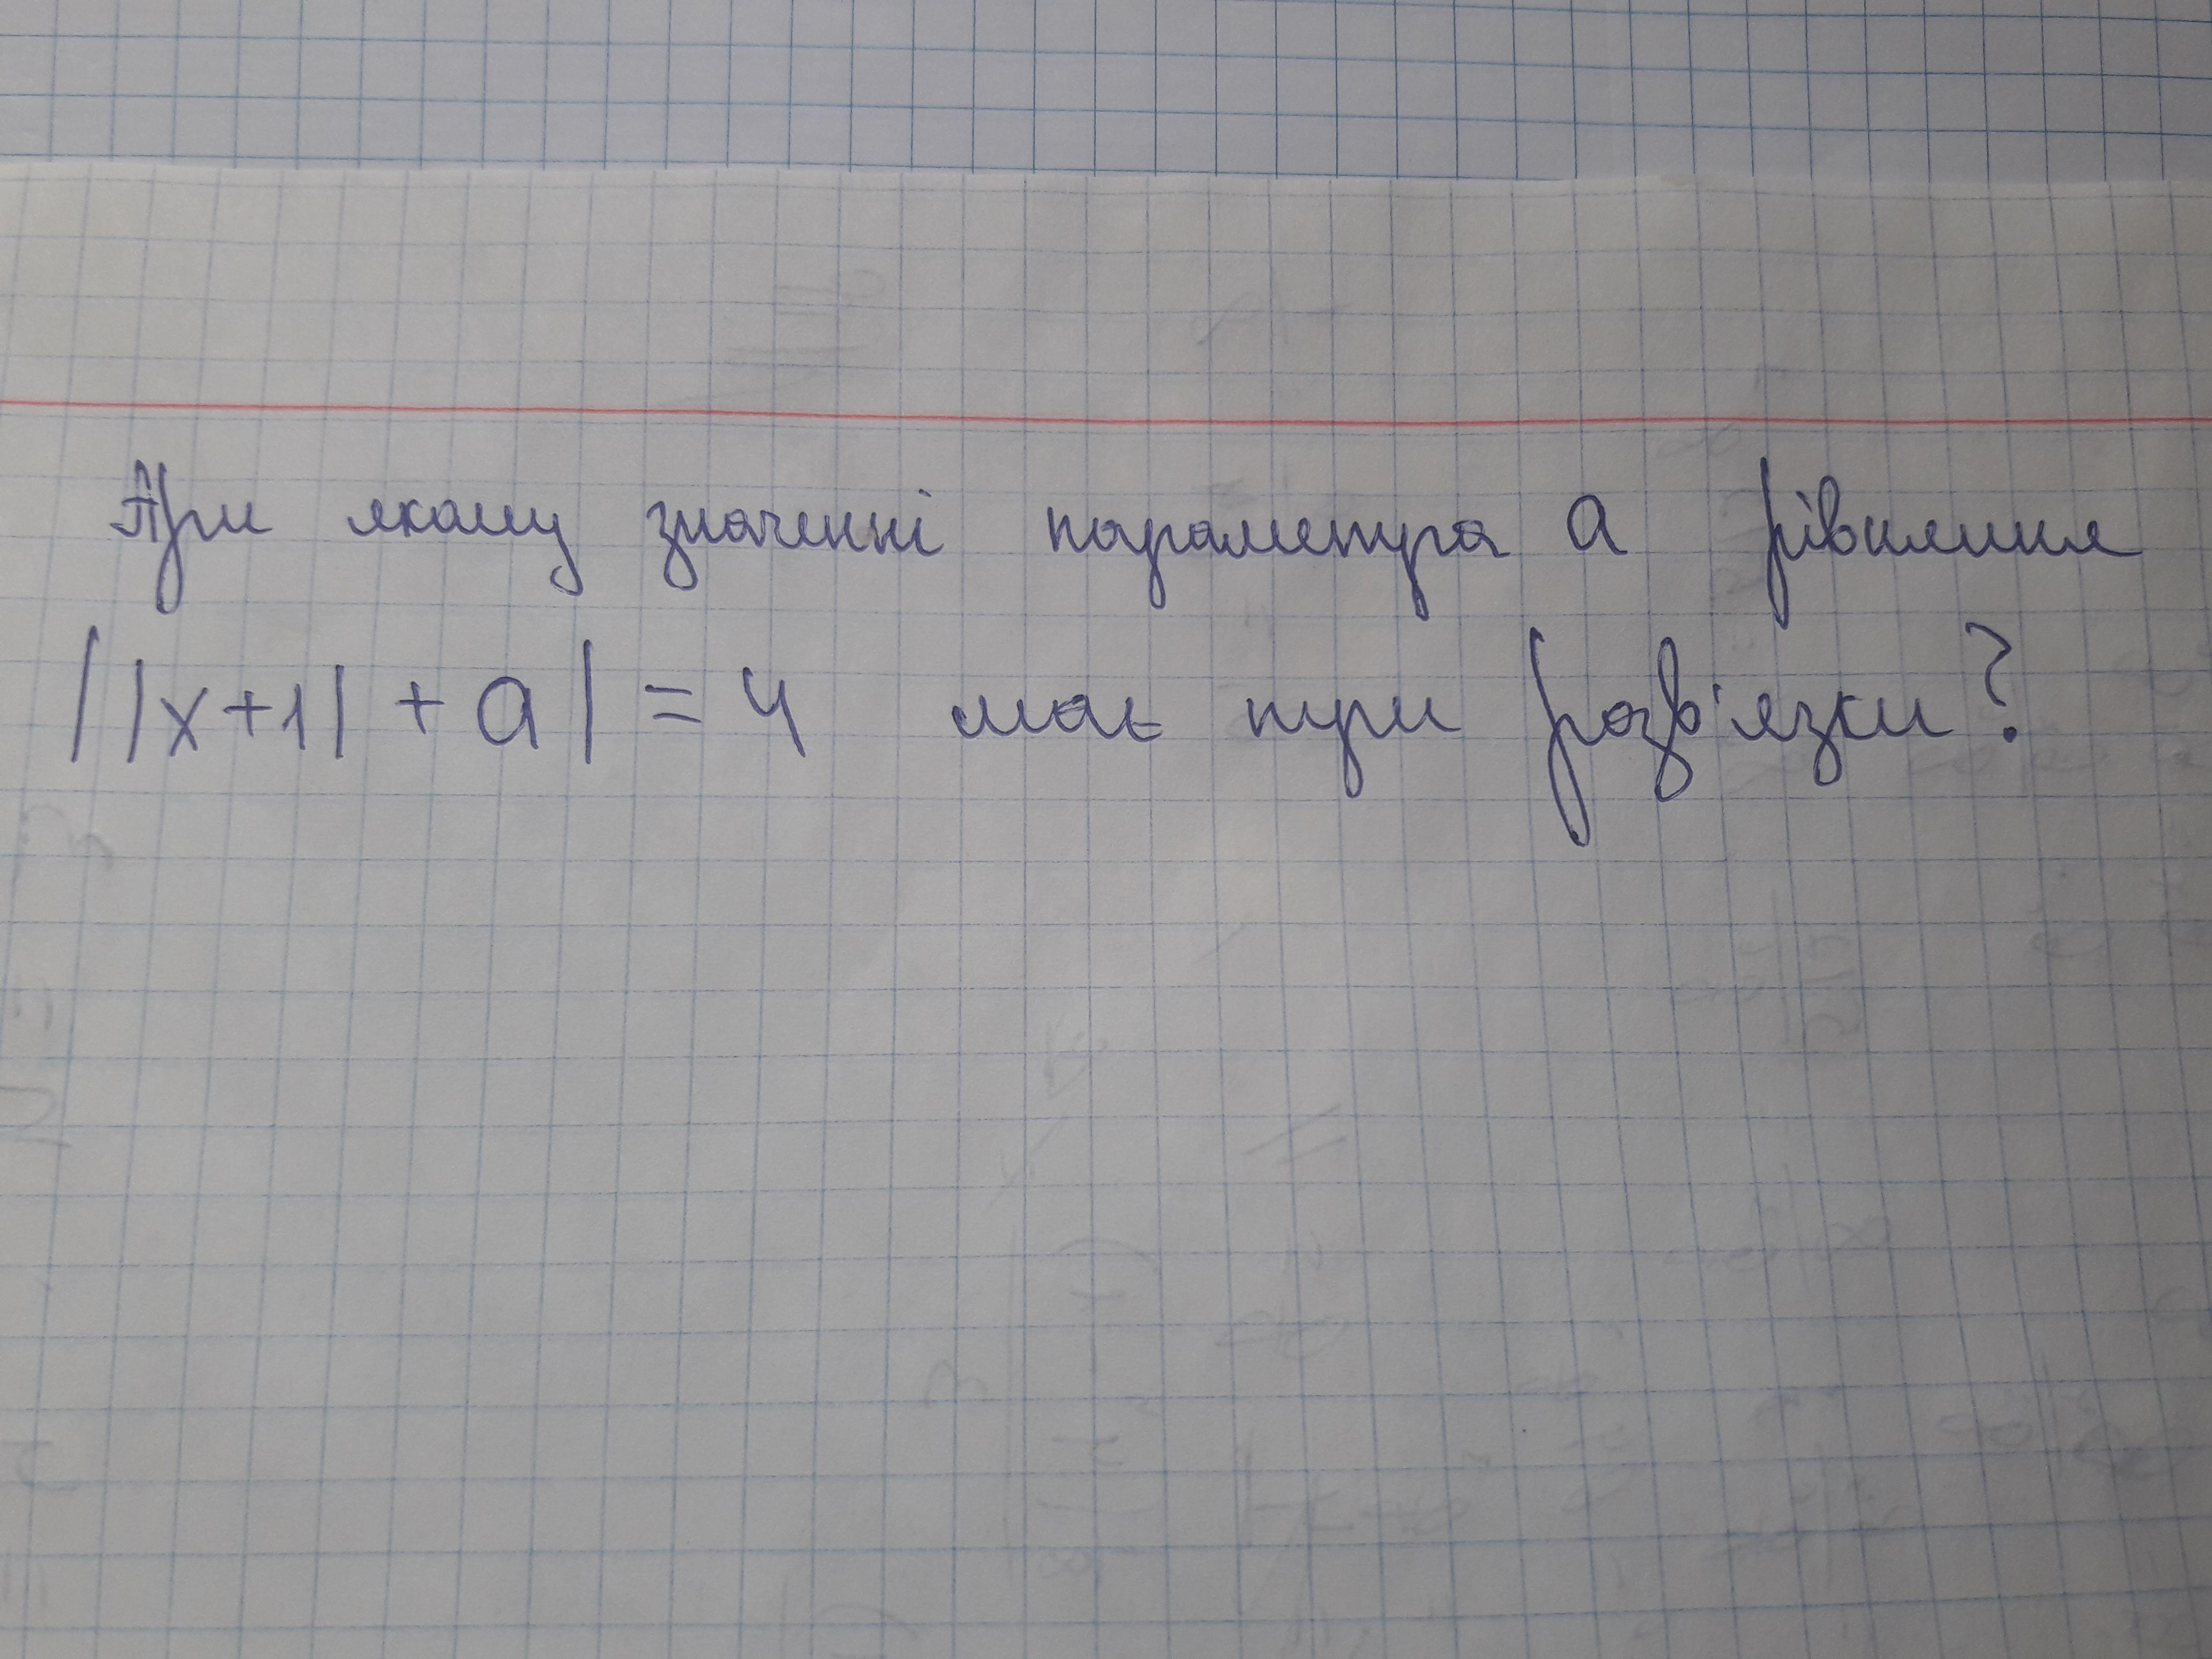 При якому значенні параметра a рівняння
||x+1| + a| = 4 має три розв'язки?